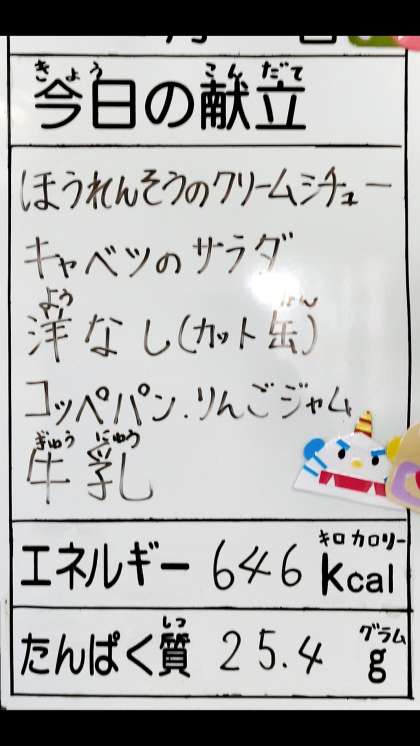 きょう こんだて
今日の献立
ほうれんそうのクリームシチュー
キャベツのサラダ
よう かん
洋なし(カット缶)
コッペパン.りんごジャム
ぎゅう にゅう
牛乳
キロカロリー
エネルギー 646 kcal
しつ グラム
たんぱく質 25.4 g